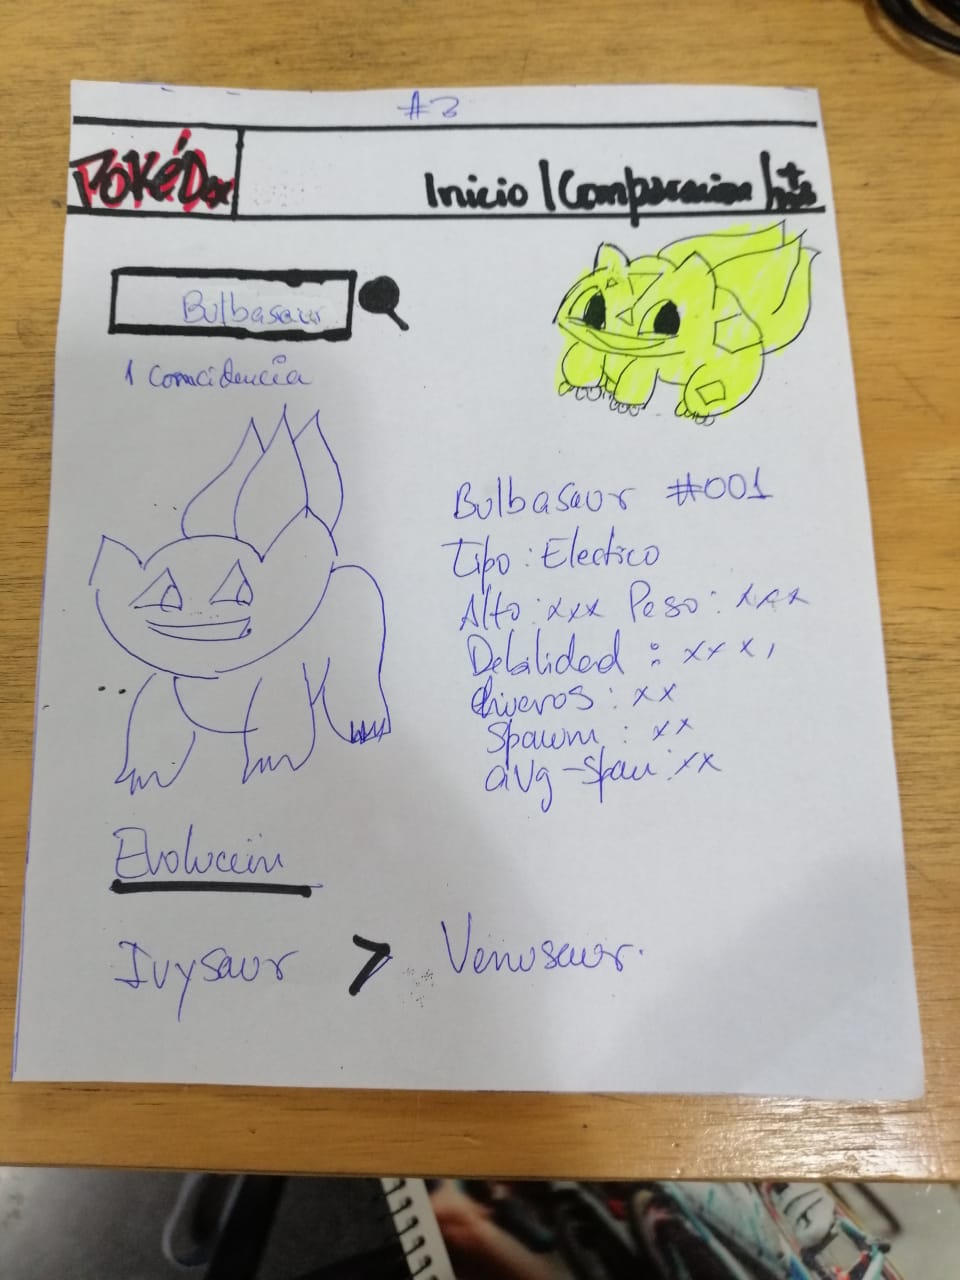 #3
POKÉDex
Inicio | Comparacion | + Info
Bulbasaur
1 Coincidencia
Bulbasaur #001
Tipo : Electico
Alto : xxx Peso : xxx
Debilidad : xxx,
: xx
Spawm : xx
aVg-Spau : xx
Evolución
Ivysaur > Venusaur.